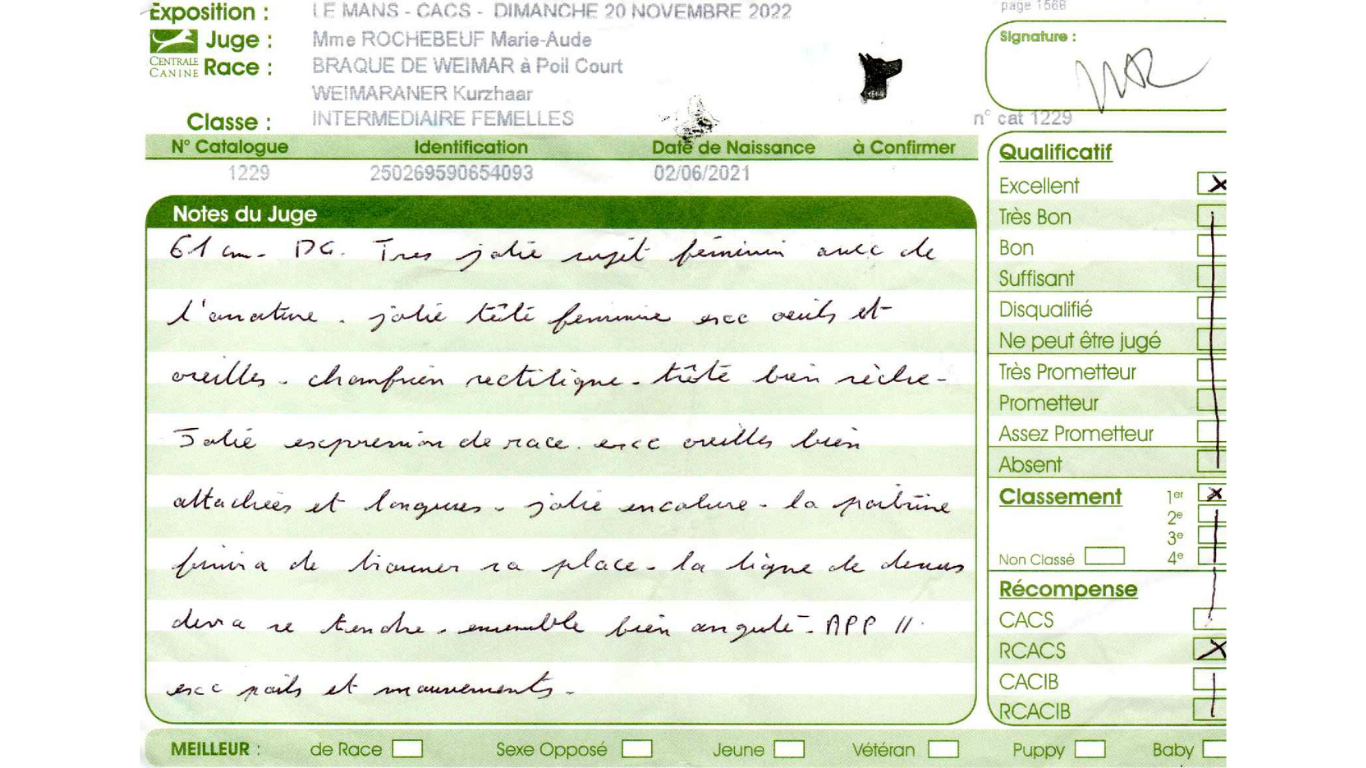 Exposition : LE MANS - CACS - DIMANCHE 20 NOVEMBRE 2022
page 1568
Juge : Mme ROCHEBEUF Marie-Aude
Signature :
CENTRALE CANINE
Race : BRAQUE DE WEIMAR à Poil Court
WEIMARANER Kurzhaar
Classe : INTERMEDIAIRE FEMELLES
n° cat 1229
N° Catalogue Identification Date de Naissance à Confirmer
1229 250269590654093 02/06/2021
Notes du Juge
61 cm. DG. Tres jolie sujet féminin avec de
l'ossature. jolie tête féminine exc oeuils et
oreilles. chanfrein rectiligne. tête bien sèche.
Jolie expression de race. exc oreilles bien
attachées et longues. jolie encolure. la poitrine
finira de trouver sa place. la ligne de dessus
devra se tendre. ensemble bien angulé. APP //
exc poils et mouvements.
Qualificatif
Excellent X
Très Bon
Bon
Suffisant
Disqualifié
Ne peut être jugé
Très Prometteur
Prometteur
Assez Prometteur
Absent
Classement 1er X
2e
3e
Non Classé 4e
Récompense
CACS
RCACS X
CACIB
RCACIB
MEILLEUR : de Race Sexe Opposé Jeune Vétéran Puppy Baby